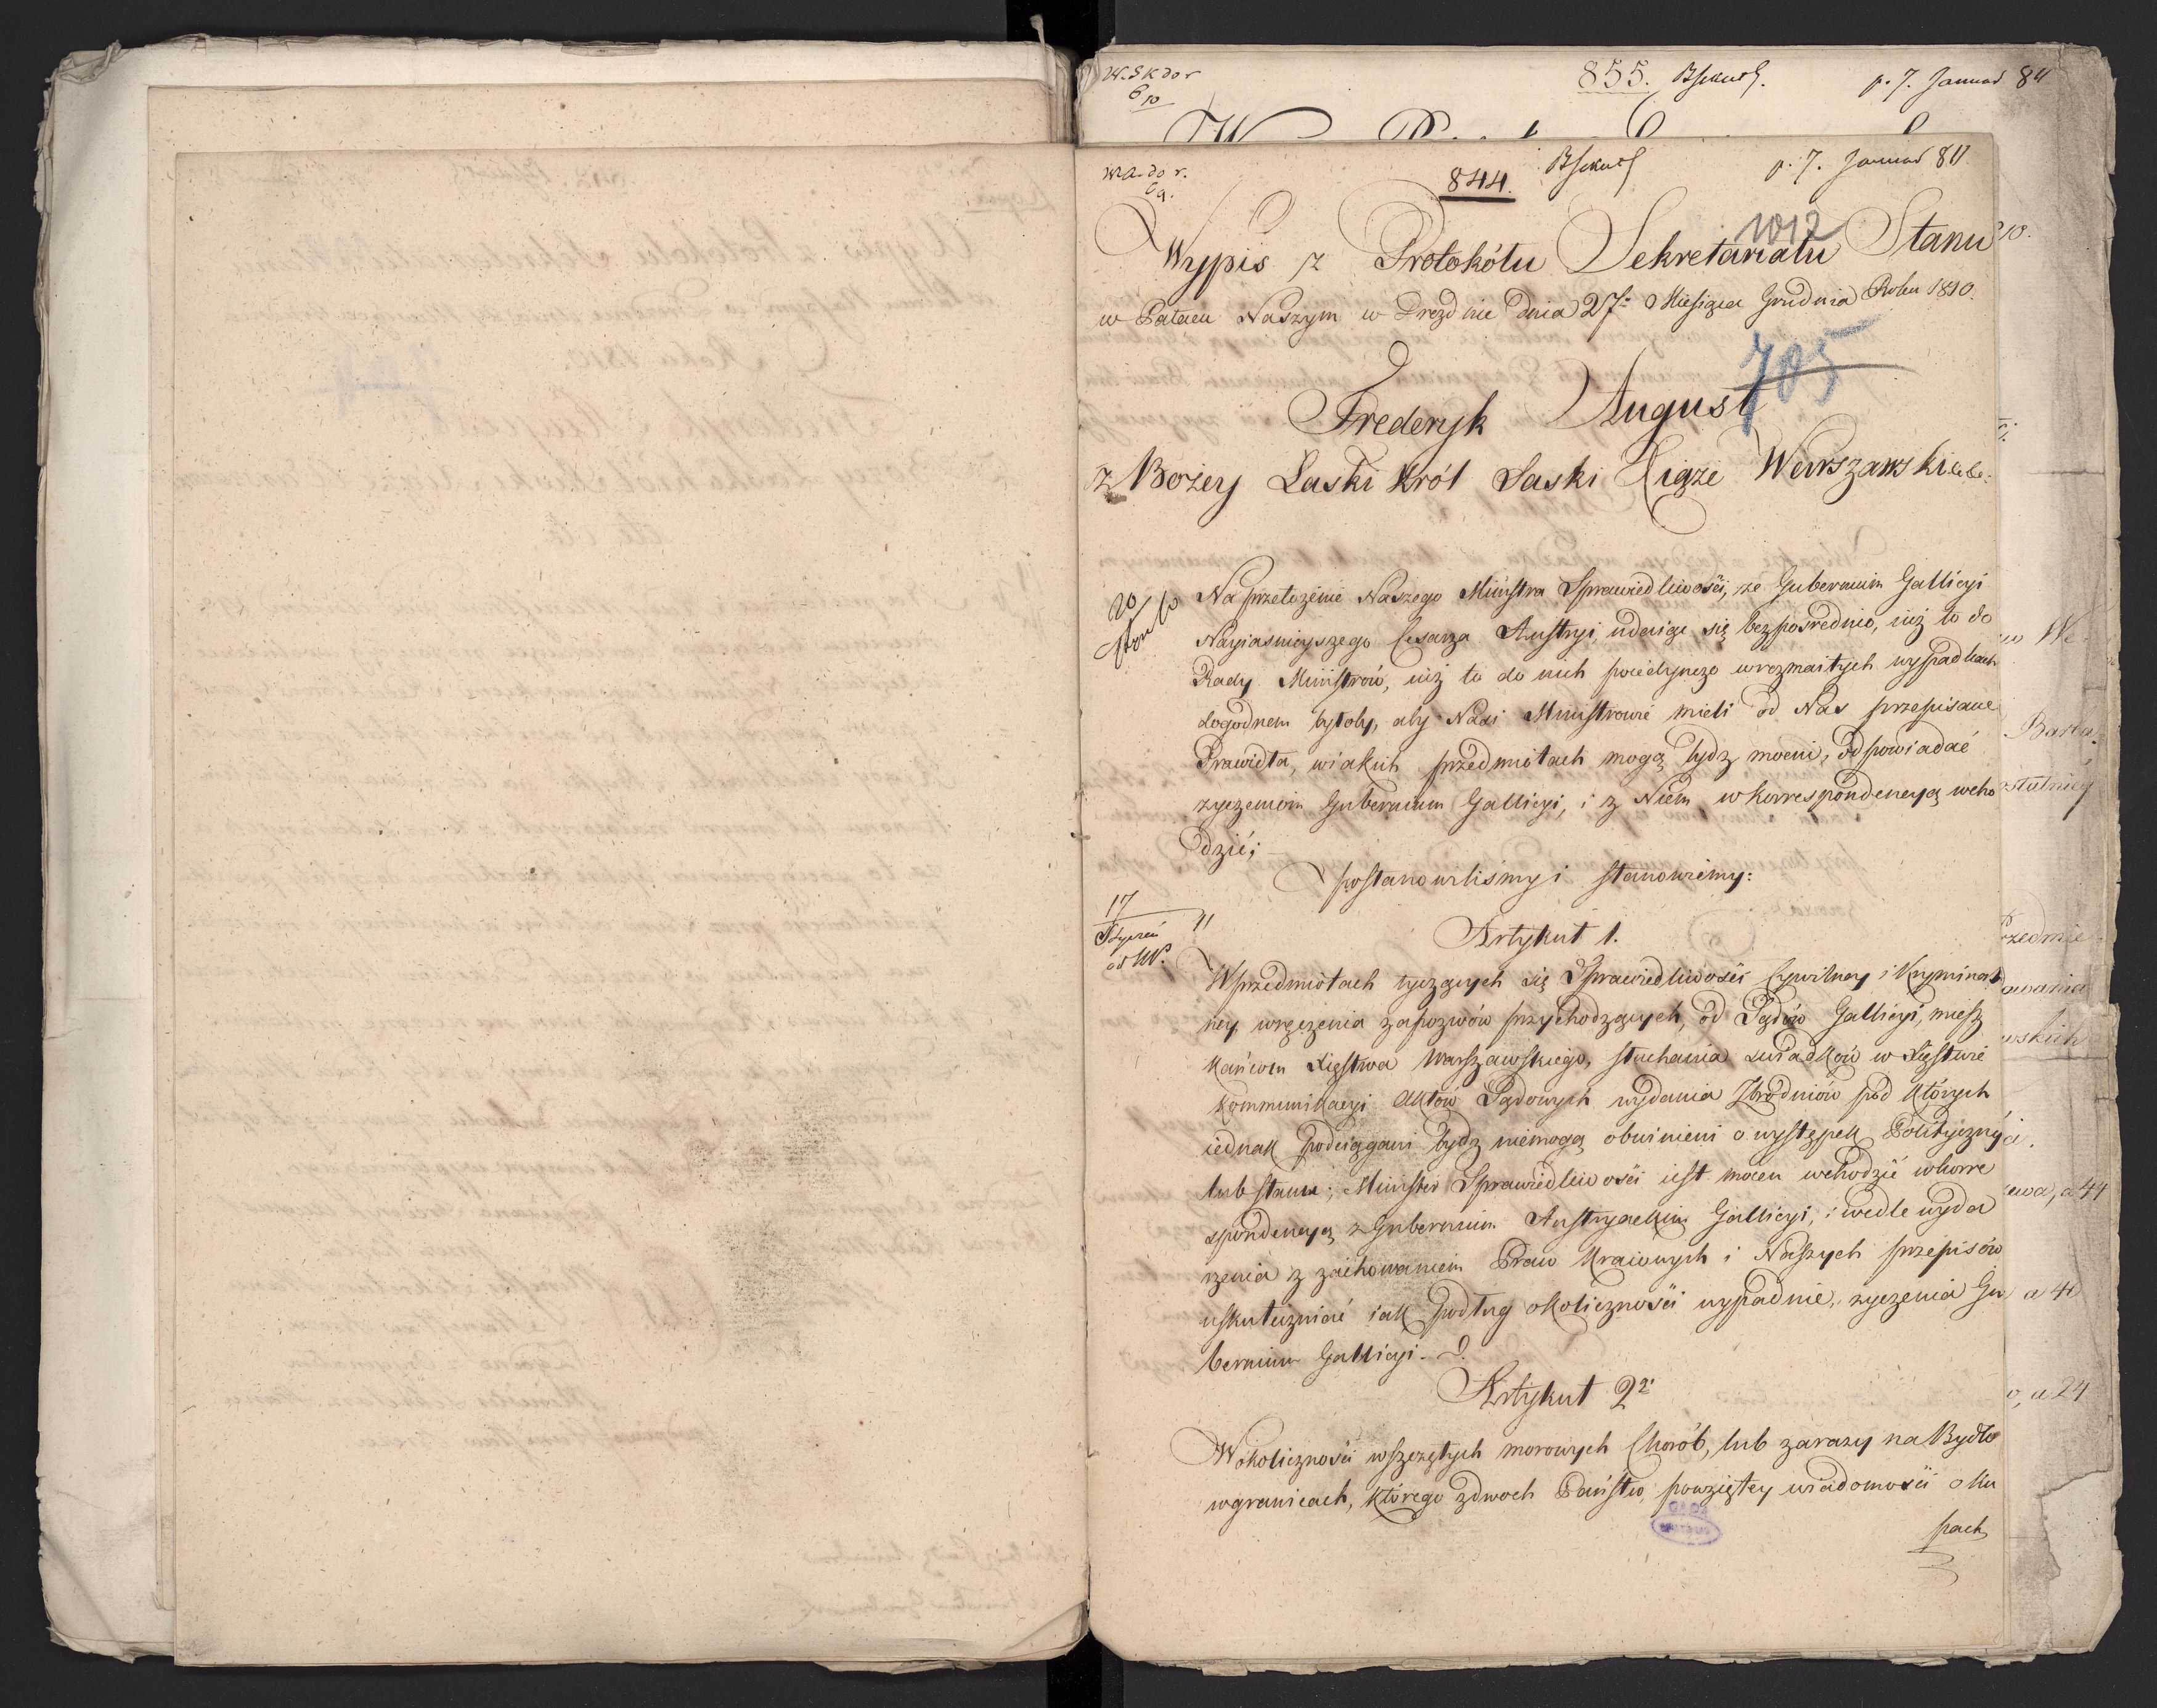 855.
p. 7. Januar 811
844.
p. 7. Januar 811
1012
Wypis z Protokółu Sekretariatu Stanu
w Pałacu Naszym w Dreźnie dnia 27º Miesiąca Grudnia Roku 1810.
705
Frederyk August
z Bożey Łaski Król Saski Xiąże Warszawski &c &c:
Na przełożenie Naszego Ministra Sprawiedliwości, że Gubernium Gallicyi
Nayiaśnieyszego Cesarza Austryi, udaiąc się bezpośrednio, iuż to do
Rady Ministrów, iuż to do nich poiedynczo w rozmaitych wypadkach
dogodnem byłoby, aby Nasi Ministrowie mieli od Nas przepisane
Prawidła, w iakich przedmiotach mogą bydź mocni, odpowiadać
życzeniom Gubernium Gallicyi, i z Niem w korrespondencyą wcho
dzić;
postanowiliśmy i stanowiemy:
17
Stycznia 11
Artykuł 1.
W przedmiotach tyczących się Sprawiedliwości Cywilney i Kryminal
ney, wręczenia zapozwów przychodzących, od Sądów Gallicyi, miesz
kańcom Xięstwa Warszawskiego, słuchania świadków w Xięstwie
kommunikacyi Aktów Sądowych wydania Zbrodniów pod których
iednak podciągani bydź niemogą obwinieni o występek Polityczny
lub stanu; Minister Sprawiedliwości iest mocen wchodzić w korre
spondencyą z Gubernium Austryackim Gallicyi, i wedle wyda
rzenia z zachowaniem Praw Kraiowych i Naszych przepisów
uskuteczniać iak podług okoliczności wypadnie, życzenia Gu
bernium Gallicyi.
Artykuł 2º
W okoliczności wszczętych morowych Chorób, lub zarazy na Bydło
w granicach, którego z dwoch Państw, powziętey wiadomości o ku
pach